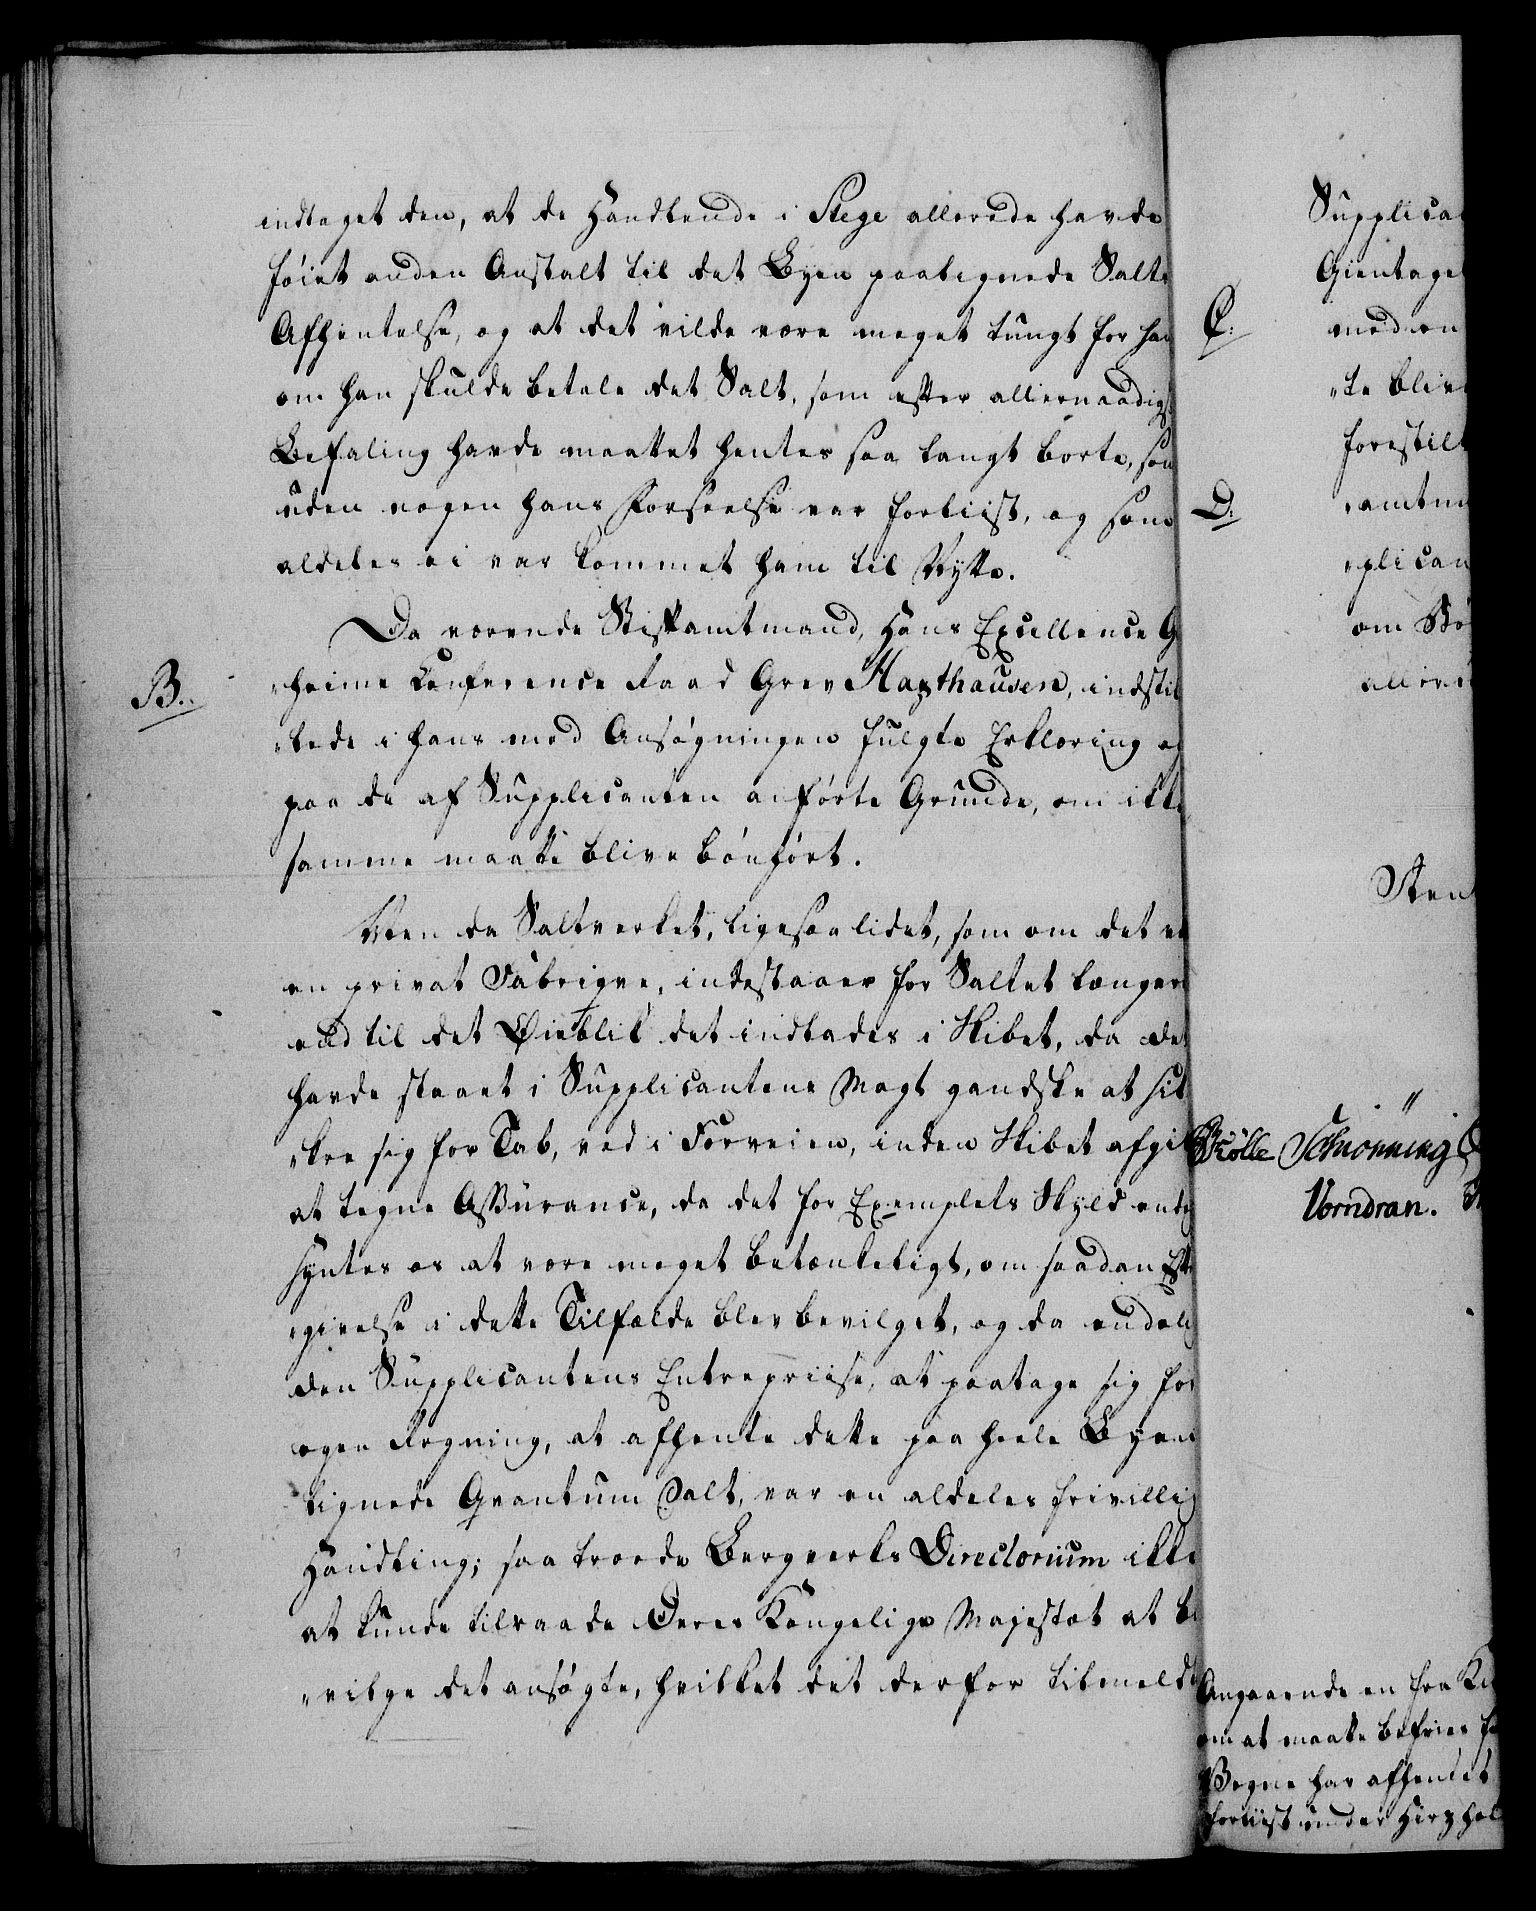 indtaget den, at de Handlende i Stege allerede havde
föiet anden Anstalt til det Byen paalignede Salts
Afhentelse, og at det vilde være meget tungt for ha
om han skulde betale det Salt, som efter allernaadigs
Befaling havde maattet hentes saa langt borte, som
uden nogen hans Forseelse var forliist, og som
aldeles ei var kommet ham til Nytte.
Da værende Stiftamtmand, Hans Excellence G
B.
„heime Conference Raad Grev Haxthausen, indstil
„lede i hans med Ansøgningen fulgte Erklæring og
paa de af Supplicanten anførte Grunde, om ikke
samme maatte blive bönhört.
Men da Saltverket, ligesaalidet, som om det va
en privat Fabrique, indestaaer for Saltet længere
end til det Øieblik det indlades i Skibet, da det
havde staaet i Supplicantens Magt gandske at sik
„kre sig for Tab, ved i Forveien, inden Skibet afgik
at tegne Assurance, da det for Exemplets Skyld end
syntes os at være meget betænkeligt, om saadan Efte
„givelse i dette Tilfælde blev bevilget, og da endelig
den Supplicantens Entrepriise, at paatage sig for
egen Regning, at afhente dette paa heele Byen
lignede Qvantum Salt, var en aldeles frivillig
Handling; saa troede Bergverks Directorium ikke
at kunde tilraade Deres Kongelige Majestæt at be
„vilge det ansøgte, hvilket det derfor tilmeldt
Supplica
Gientage
C.
med en
„te blive
forestilt
D.
„amtm
„plican
om
aller
Sten
Brølle Schiønning
Vorndran.
Angaaende en fra K
om at maatte befries f
Vogne har afhentet
forliist under Hirzhol